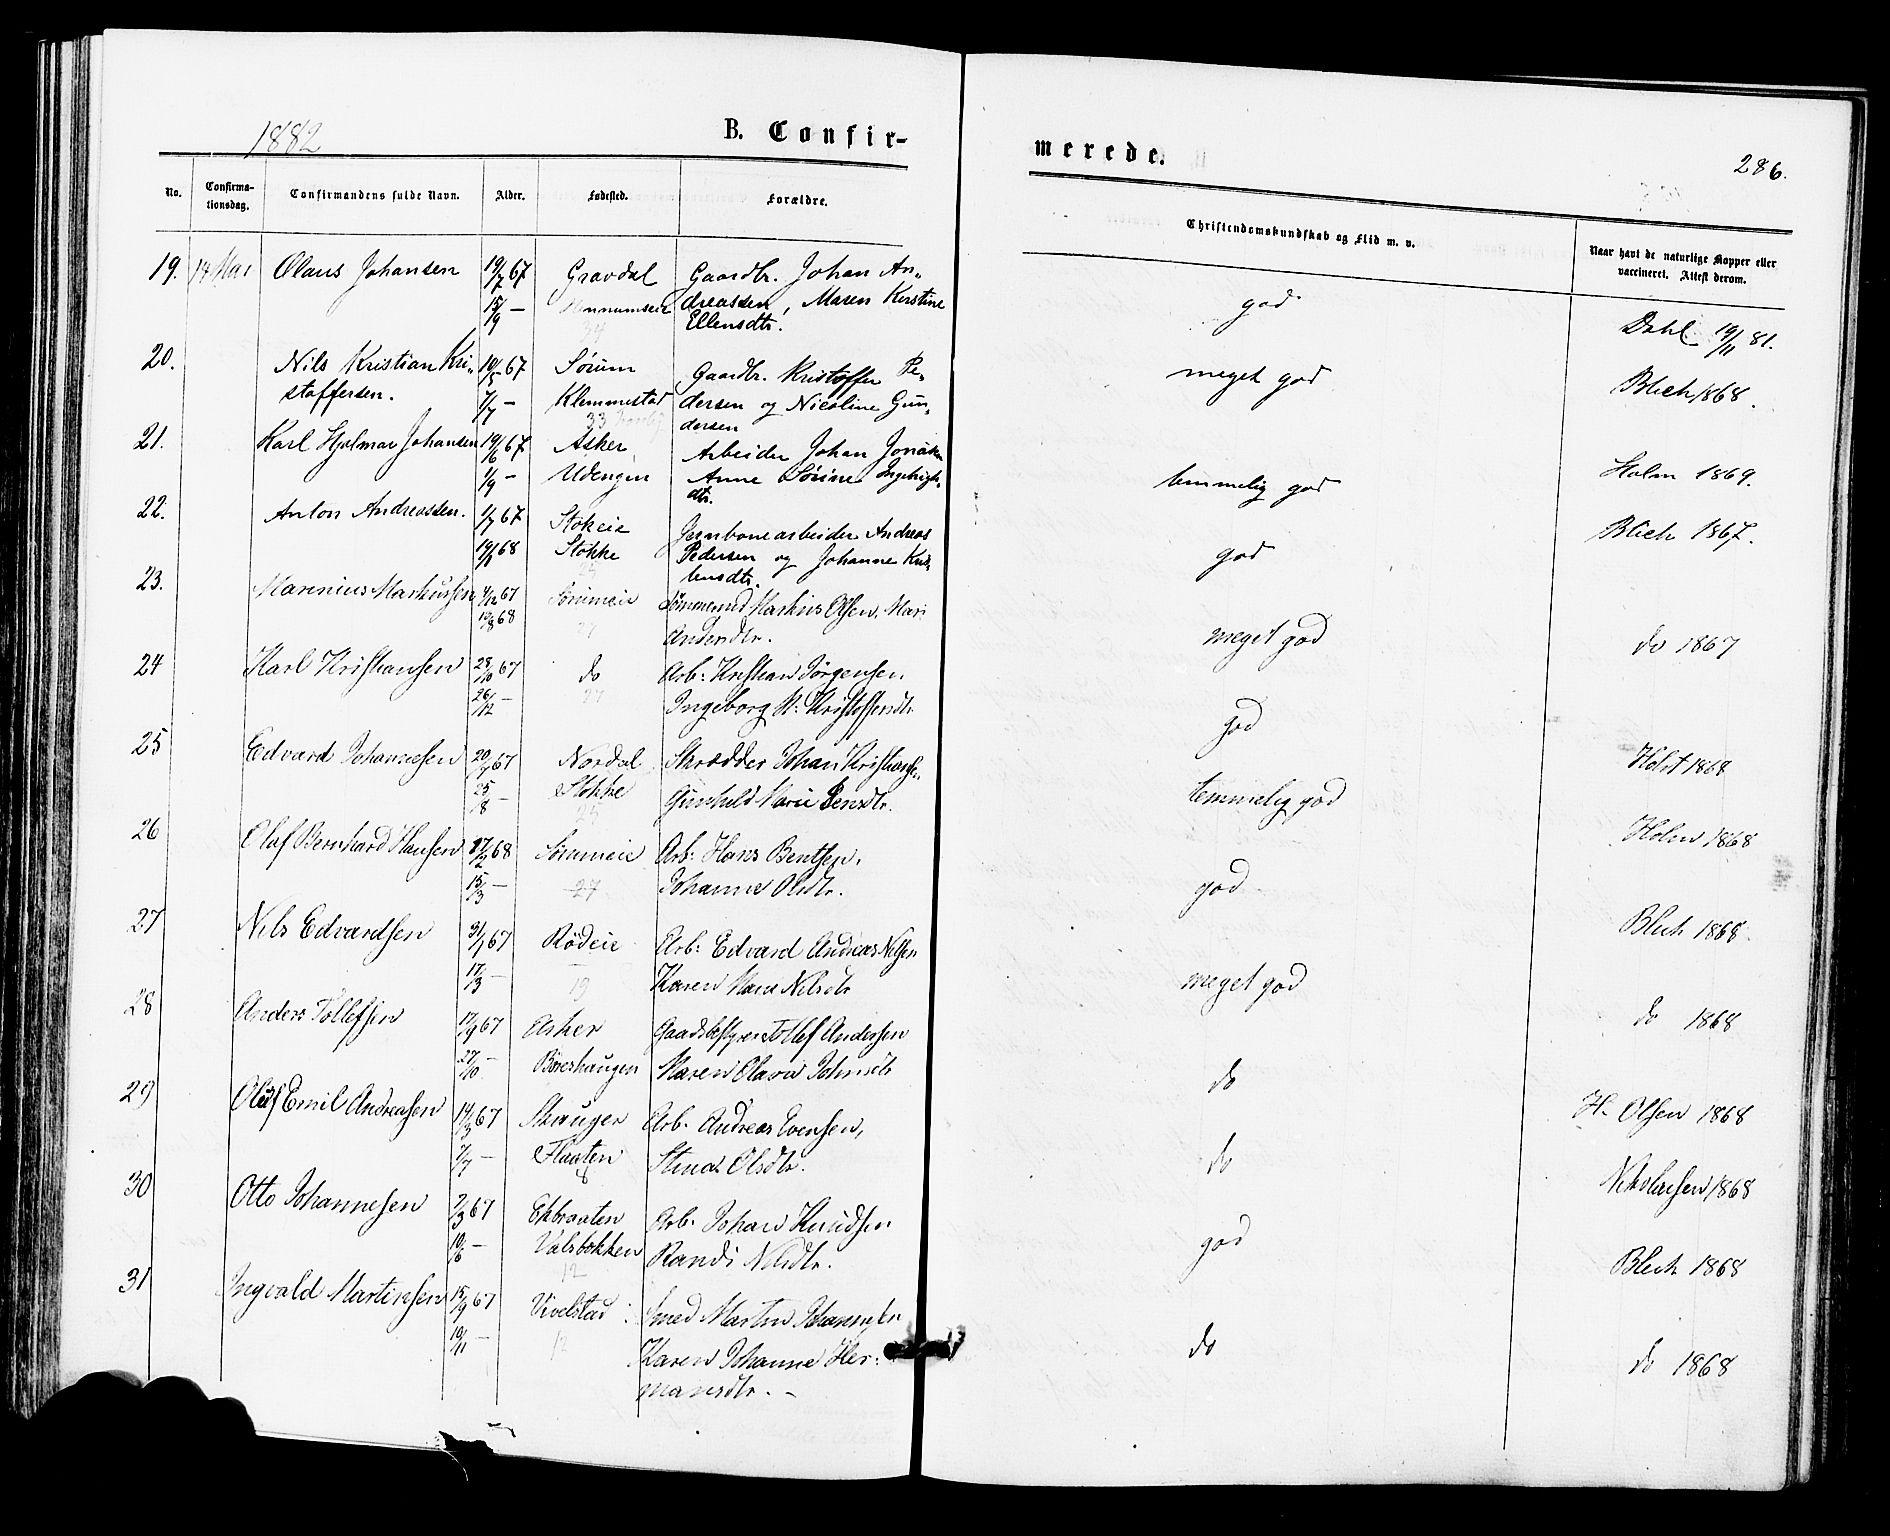 1882
B. Confir-
merede.
286.
No.
Confirma-
tionsdag.
Confirmandens fulde Navn.
Alder.
Fødested.
Forældre.
Christendomskundskab og Flid m. v.
Naar havt de naturlige Kopper eller
vaccineret. Attest derom.
19. 14 Mai Olaus Johansen 19/7 67 Gravdal Gaardbr. Johan An-
15/9 — dreassen, Maren Kerstine
Ellensdtr.
god
Dahl 19/11 81.
20. Nils Kristian Kri- 10/5 67 Sørum Gaardbr. Kristoffer Pe-
stoffersen. 7/7 — Klemmestad dersen og Nicoline Gun-
33 dersen
meget god
Blich 1868.
21. Karl Hjalmar Johansen 19/6 67 Asker, Arbeider Johan
1/9 — Udengen Anne Sørine
dtr.
temmelig god
Holm 1869.
22. Anton Andreassen. 1/7 67 Stokeie Jernbanearbeider Andreas
68 Stokke Pedersen og Johanne Kris-
tensdtr.
god
Blich 1867.
23. Marenius Markussen 4/12 67 Sørumeie Tømmermd Markus Olsen, Mari
68 27 Andersdtr.
meget god
do 1867
24 Karl Kristiansen 28/10 67 do Arb: Kristian Jørgensen,
26/12 — 27 Ingeborg M. Kristoffersdtr
god
Holst 1868
25 Edvard Johannesen 20/7 67 Nordal Skrædder Johan
25/8 — Stokke Gunhild Marie Bensdtr.
temmelig god
Holm 1868
26 Olaf Bernhard Hansen 17/2 68 Sørumeie Arb: Hans Bentsen,
15/3 — 27 Johanne Olsdtr.
god
Blich 1868
27 Nils Edvardsen 31/1 67 Rødeie Arb: Edvard Andreas Nilsen
17/3 — 19 Karen Marie Nilsdtr
meget god
do 1868
28 Anders Tollefsen 17/9 67 Asker Gaardsbestyrer Tollef Andersen
27/10 — Børeshaugen Maren Olava Johnsdtr
do
H. Olsen 1868
29 Oluf Emil Andreasen 14/3 67 Skauger Arb. Andreas Evensen,
7/7 — Flaaten Stina Olsdtr.
do
Nikolaisen 1868
30 Otto Johannesen 7/3 67 Ekbraaten Arb. Johan Knudsen
10/6 — Valsbækken Randi Nilsdtr.
12
god
Blich 1868
31 Ingvald Martinsen 15/9 67 Vivelstad Smed Martin Johannesen
10/11 — 12 Karen Johanne Her-
mansdtr. —
do
do 1868